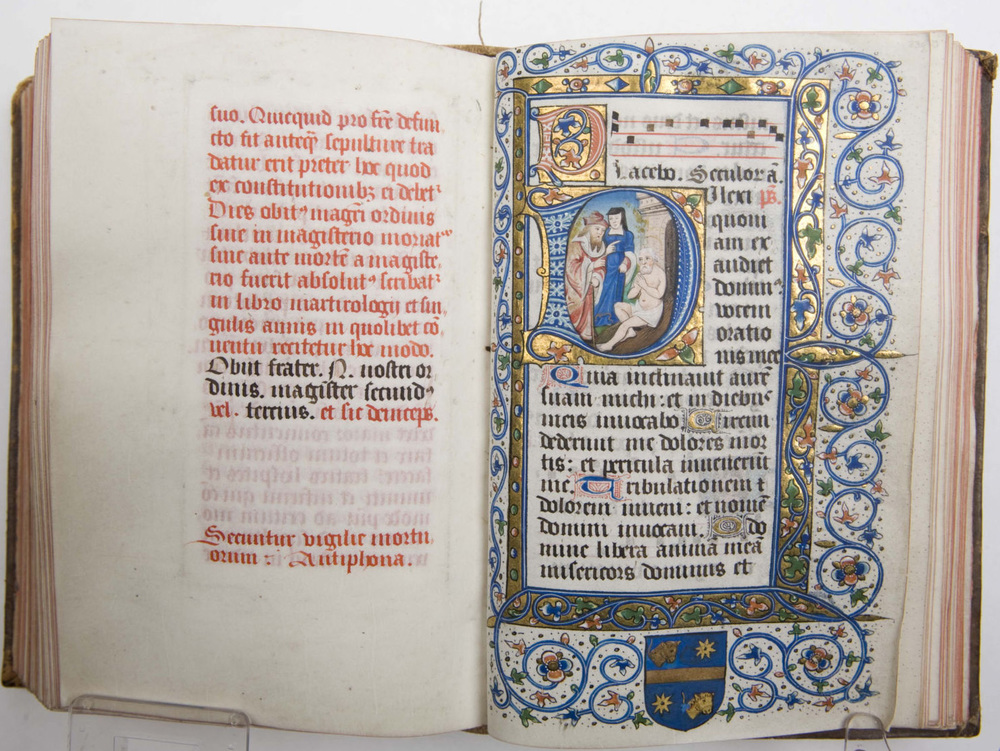 suo. Quicquid pro fr̄e defun
cto fit auteq̄ sepulture tra
datur erit preter hoc quod
ex constitutionibꝫ ei debetᷣ
Dies obitꝰ magr̄i ordinis
siue in magisterio moriatᷣ
siue ante mortē a magiste
rio fuerit absolutꝰ scribatᷣ
in libro martirologij et sin
gulis annis in quolibet cō
uentu recitetur hoc modo.
Obijt frater. N. nostri or
dinis. magister secundꝰ
vel. tercius. et sic deinceps.
Secuntur vigilie mortu
orum : Antiphona.
Placebo. Seculor a.
Dilexi ps.
quoni
am ex
audiet
dominꝰ
vocem
oratio
nis mee
Quia inclinauit aurē
suam michi: et in diebus
meis inuocabo Circum
dederunt me dolores mor
tis: et pericula inuenerūt
me. Tribulationem et
dolorem inueni: et nomē
domini inuocaui. O do
mine libera animā meā
misericors dominus et